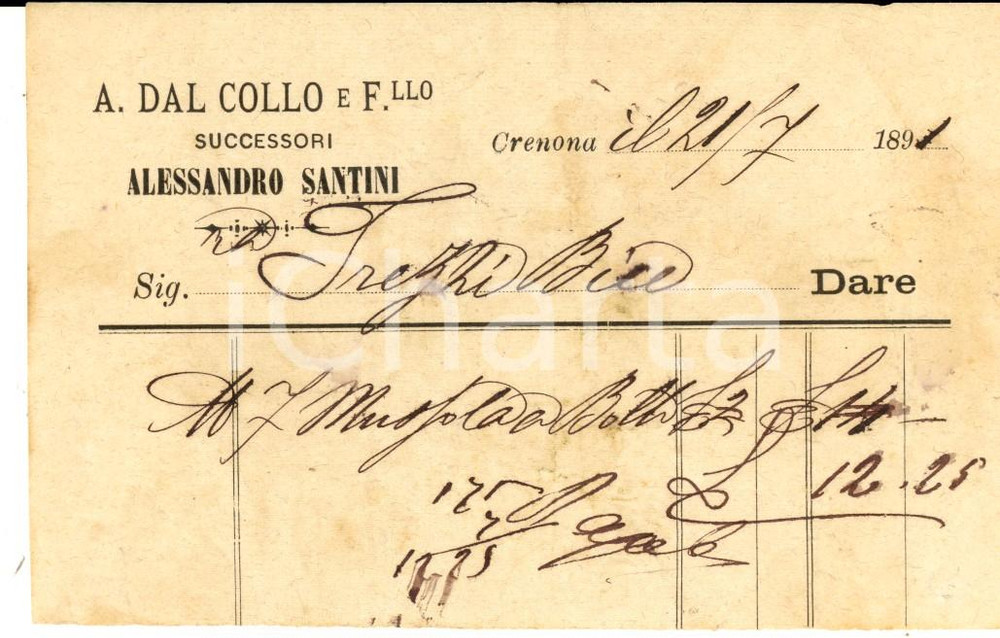 A. DAL COLLO E F.LLO
SUCCESSORI
ALESSANDRO SANTINI
Crenona il 21/7 1891
Sig. Trezzi Bice Dare
M 7 Mussola a £ 2 £ 14 —
£ 12.25
175
7
12 25
iCharta